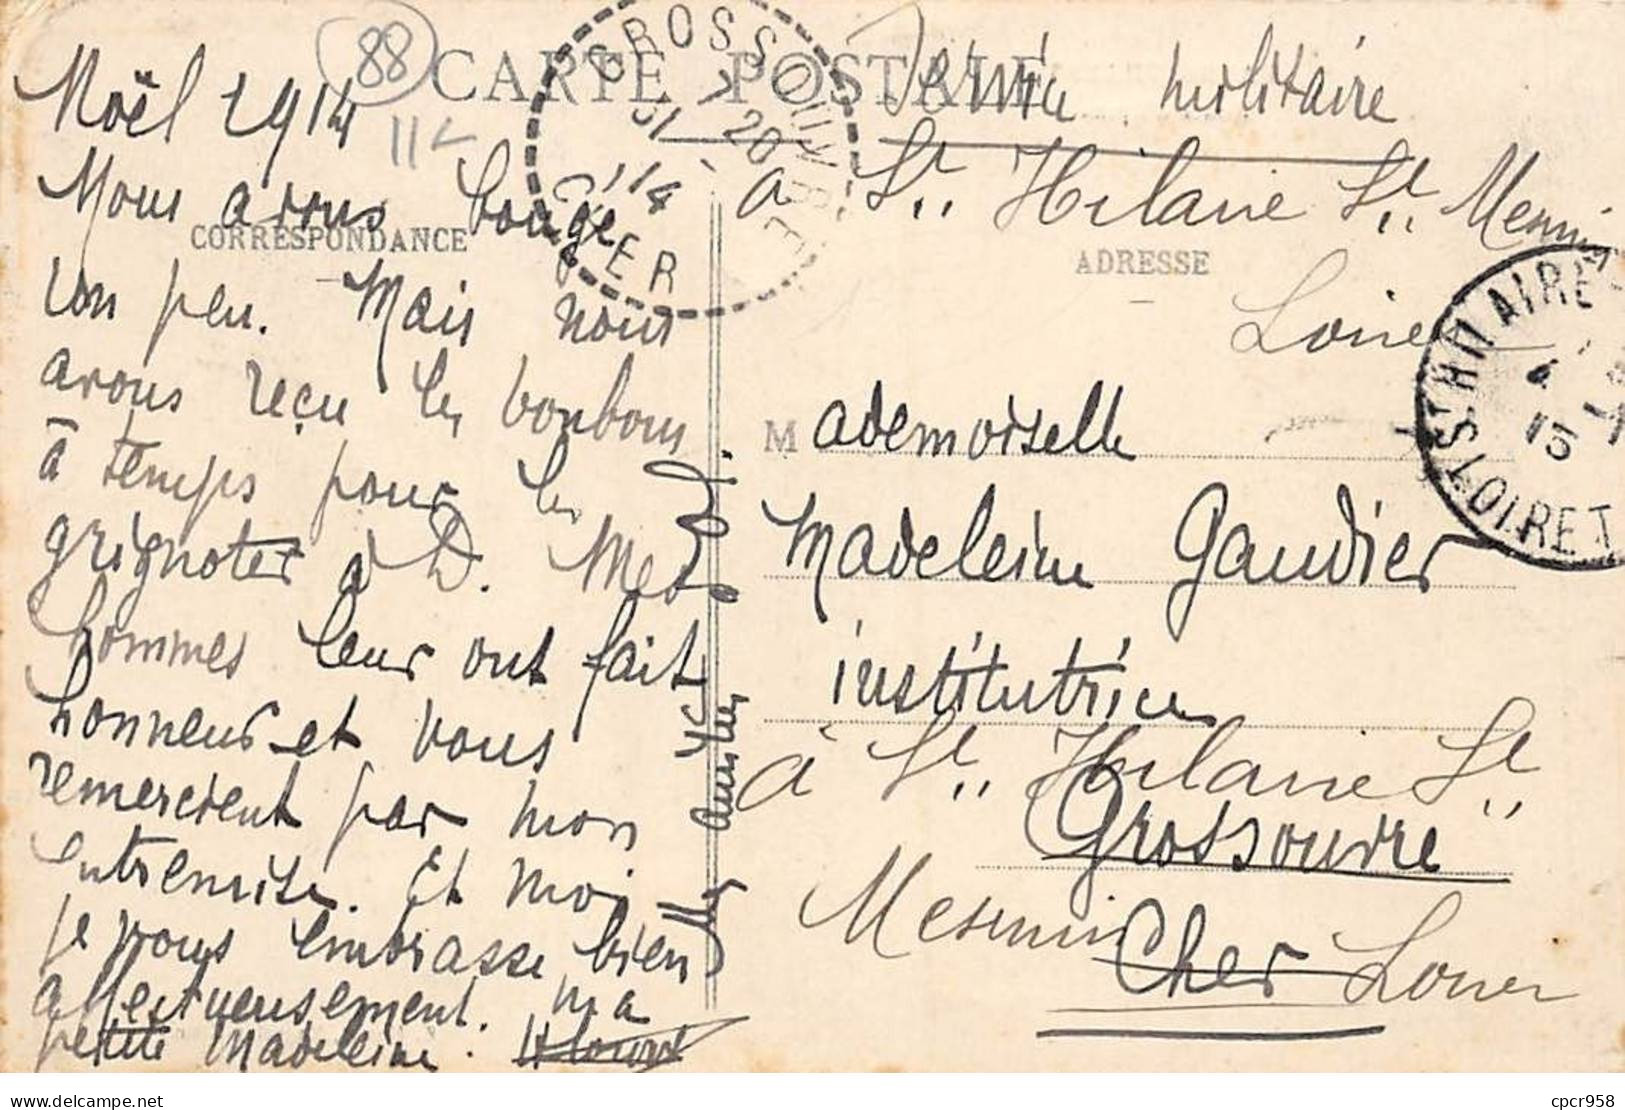 88
CARTE POSTALE
Noël 1914
11
Nous avons bougé
CORRESPONDANCE
un peu. Mais nous
avons reçu les bonbons
à temps pour les
grignoter à D. Mes
hommes leur ont fait
honneur et vous
remercient par mon
entremise. Et moi
je vous embrasse bien
affectueusement. ma
petite Madeleine.
GROSSOUVRE
31
20
14
CHER
Service militaire
à St. Hilaire St. Mesmin
ADRESSE
Loire
ST HILAIRE
4
15
LOIRET
Mademoiselle
Madeleine Gaudier
institutrice
à St. Hilaire St.
Grossouvre
Mesmin
Cher
cpcr958